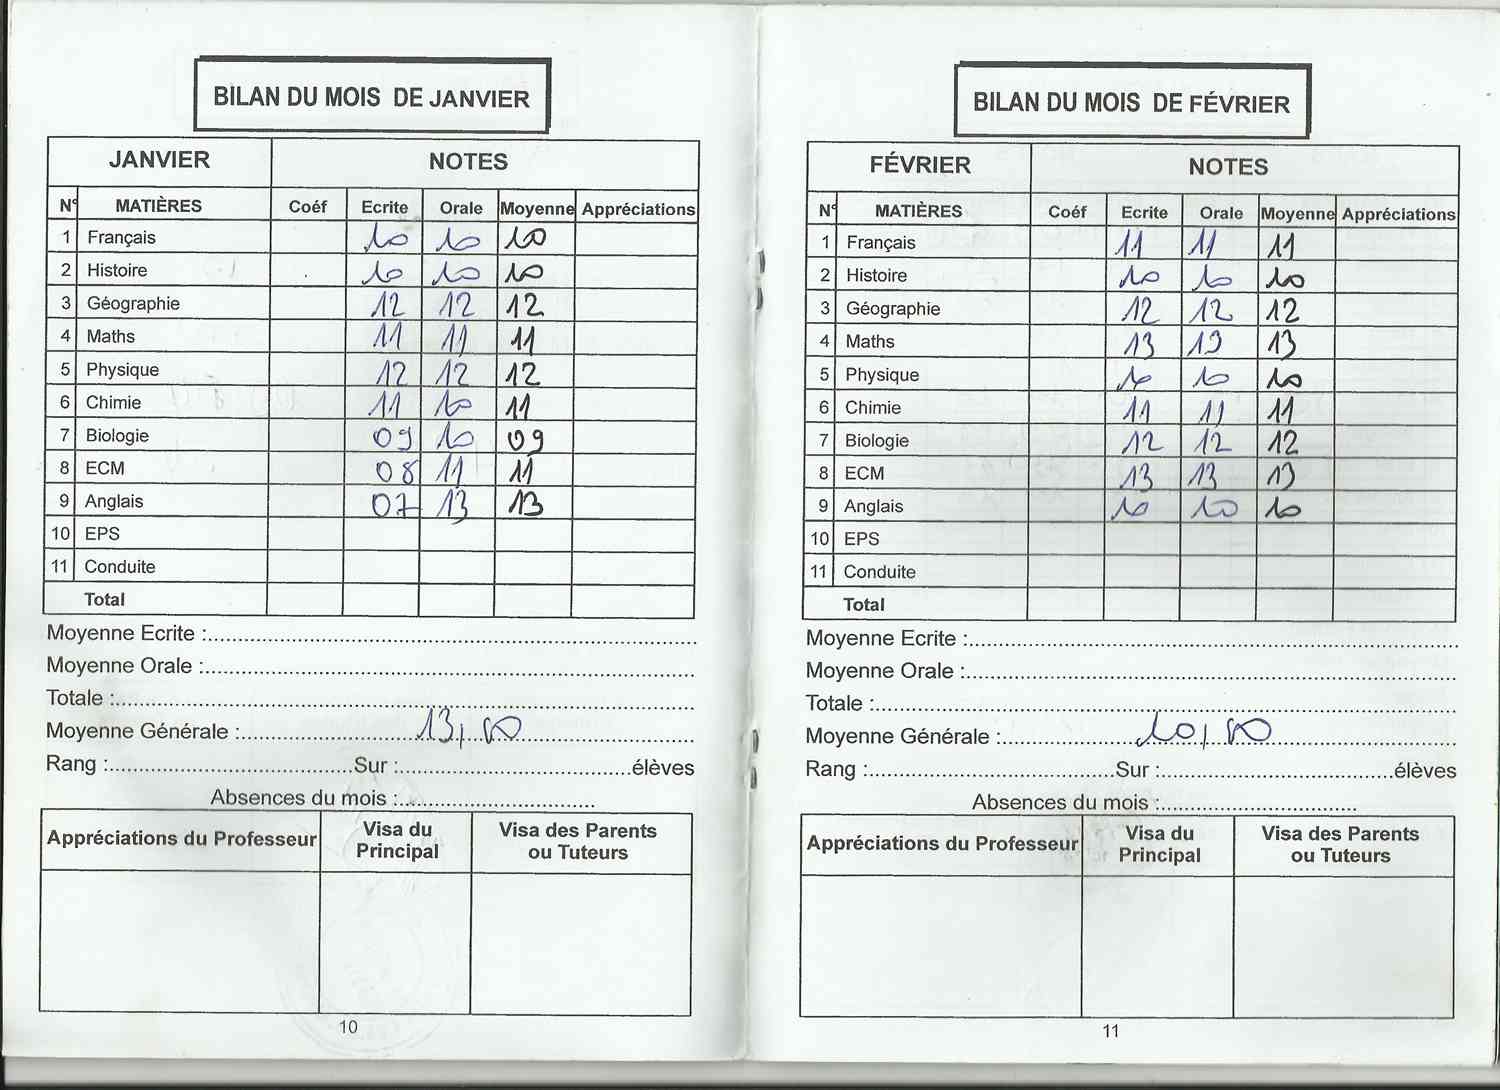 BILAN DU MOIS DE JANVIER
JANVIER NOTES
N° MATIÈRES Coéf Ecrite Orale Moyenne Appréciations
1 Français 10 10 10
2 Histoire 10 10 10
3 Géographie 12 12 12
4 Maths 11 11 11
5 Physique 12 12 12
6 Chimie 11 10 11
7 Biologie 09 10 09
8 ECM 08 11 11
9 Anglais 07 13 13
10 EPS
11 Conduite
Total
Moyenne Ecrite :
Moyenne Orale :
Totale :
Moyenne Générale : 13,00
Rang : Sur : élèves
Absences du mois :
Appréciations du Professeur Visa du Principal Visa des Parents ou Tuteurs
10
BILAN DU MOIS DE FÉVRIER
FÉVRIER NOTES
N° MATIÈRES Coéf Ecrite Orale Moyenne Appréciations
1 Français 11 11 11
2 Histoire 10 10 10
3 Géographie 12 12 12
4 Maths 13 13 13
5 Physique 10 10 10
6 Chimie 11 11 11
7 Biologie 12 12 12
8 ECM 13 13 13
9 Anglais 10 10 10
10 EPS
11 Conduite
Total
Moyenne Ecrite :
Moyenne Orale :
Totale :
Moyenne Générale : 10,00
Rang : Sur : élèves
Absences du mois :
Appréciations du Professeur Visa du Principal Visa des Parents ou Tuteurs
11